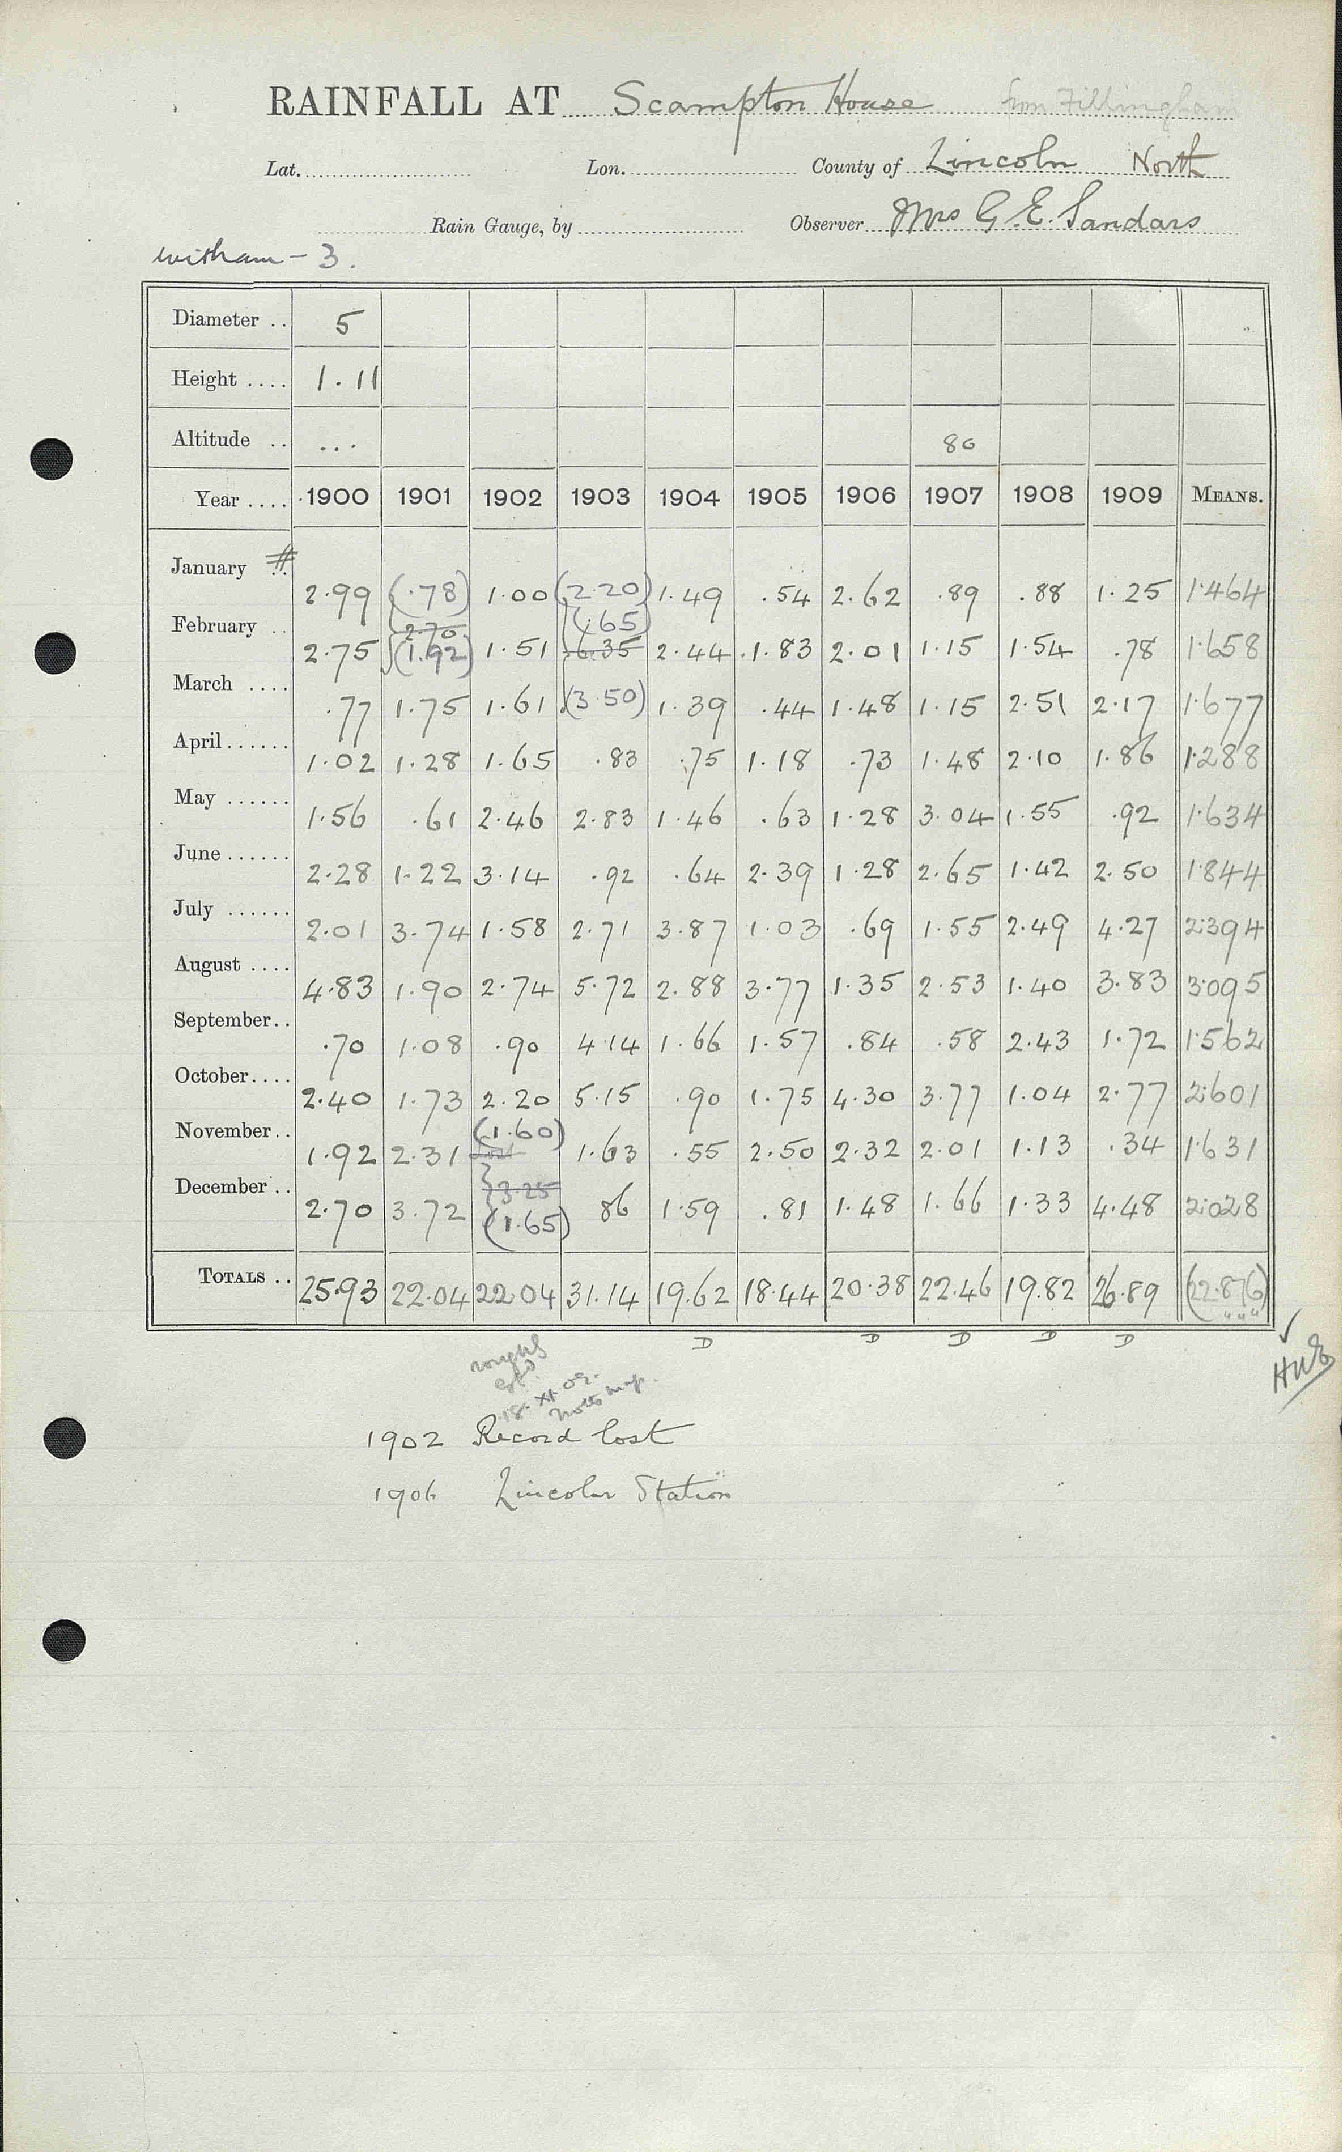 RAINFALL AT Scampton House from Fillingham
Lat. Lon. County of Lincoln North
Rain Gauge, by Observer Mrs G. E. Sandars
Witham - 3.
Diameter .. 5
Height .... 1.11
Altitude .. ... 80
Year .... 1900 1901 1902 1903 1904 1905 1906 1907 1908 1909 MEANS.
January # 2.99 (.78) 1.00 (2.20) 1.49 .54 2.62 .89 .88 1.25 1.464
2.70 (.65)
February .. 2.75 (1.92) 1.51 6.35 2.44 1.83 2.01 1.15 1.54 .78 1.658
March .... .77 1.75 1.61 (3.50) 1.39 .44 1.48 1.15 2.51 2.17 1.677
April...... 1.02 1.28 1.65 .83 .75 1.18 .73 1.48 2.10 1.86 1.288
May ...... 1.56 .61 2.46 2.83 1.46 .63 1.28 3.04 1.55 .92 1.634
June...... 2.28 1.22 3.14 .92 .64 2.39 1.28 2.65 1.42 2.50 1.844
July ...... 2.01 3.74 1.58 2.71 3.87 1.03 .69 1.55 2.49 4.27 2.394
August .... 4.83 1.90 2.74 5.72 2.88 3.77 1.35 2.53 1.40 3.83 3.095
September.. .70 1.08 .90 4.14 1.66 1.57 .84 .58 2.43 1.72 1.562
October.... 2.40 1.73 2.20 5.15 .90 1.75 4.30 3.77 1.04 2.77 2.601
(1.60)
November.. 1.92 2.31 lost 1.63 .55 2.50 2.32 2.01 1.13 .34 1.631
3.25
December .. 2.70 3.72 (1.65) 86 1.59 .81 1.48 1.66 1.33 4.48 2.028
TOTALS .. 25.93 22.04 22.04 31.14 19.62 18.44 20.38 22.46 19.82 26.89 (22.876)
D D D D D
HWE
roughly
estd
18. XI. 09.
Notts map.
1902 Record lost
1906 Lincoln Station